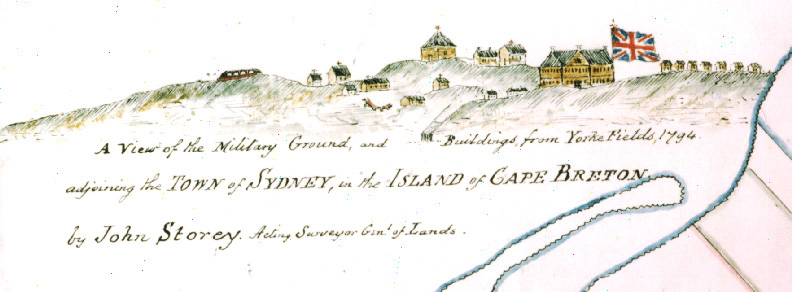 A View of the Military Ground, and Buildings, from Yorke Fields, 1794
adjoining the TOWN of SYDNEY, in the ISLAND of CAPE BRETON.
by John Storey. Acting Surveyor Genl. of Lands.